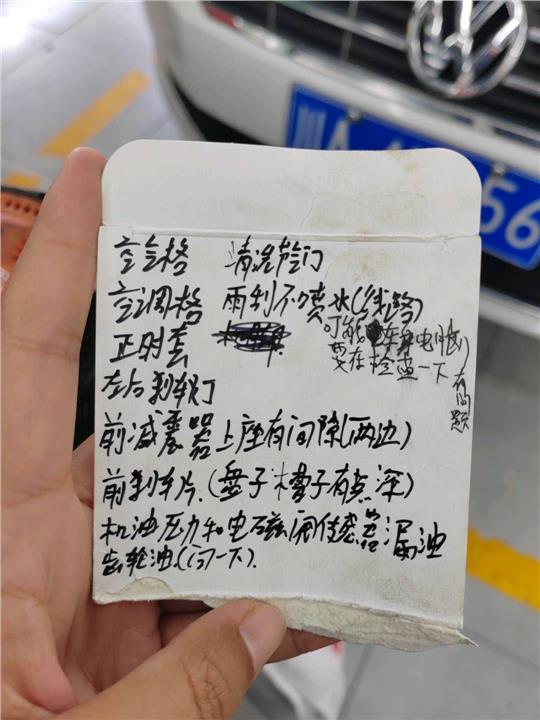 川A 56
空气格 清洗节门
空调格 雨刮不喷水(线路)
可能 车身电脑有问题
要在检查一下
正时套
左后刹车灯
前减震器上座有间隙(两边)
前刹车片.(盘子槽子有点深)
机油压力和电磁阀传感器漏油
齿轮油.(问一下).